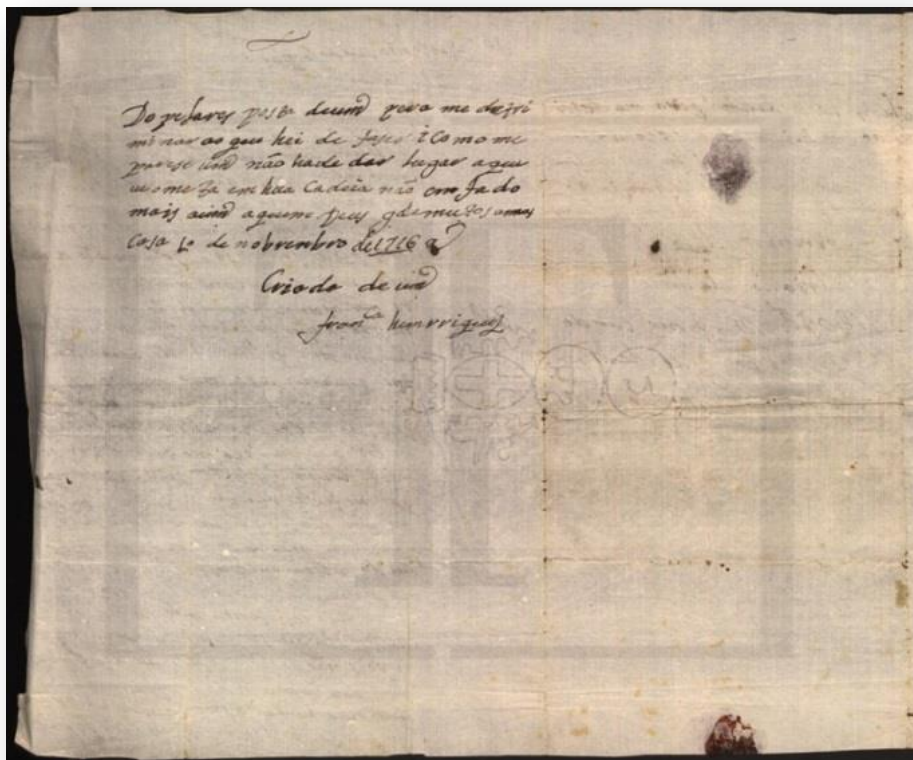 posta de vmd pera me detri
minar ao que hei de faser i Como me
parese vmd não hade dar lugar a que
em hua Cadeia não emfado
mais a vmd a quem deus gde muitos annos
Casa 10 de nobrembro de 1716
Criado de vmd
fran.co hemrriques